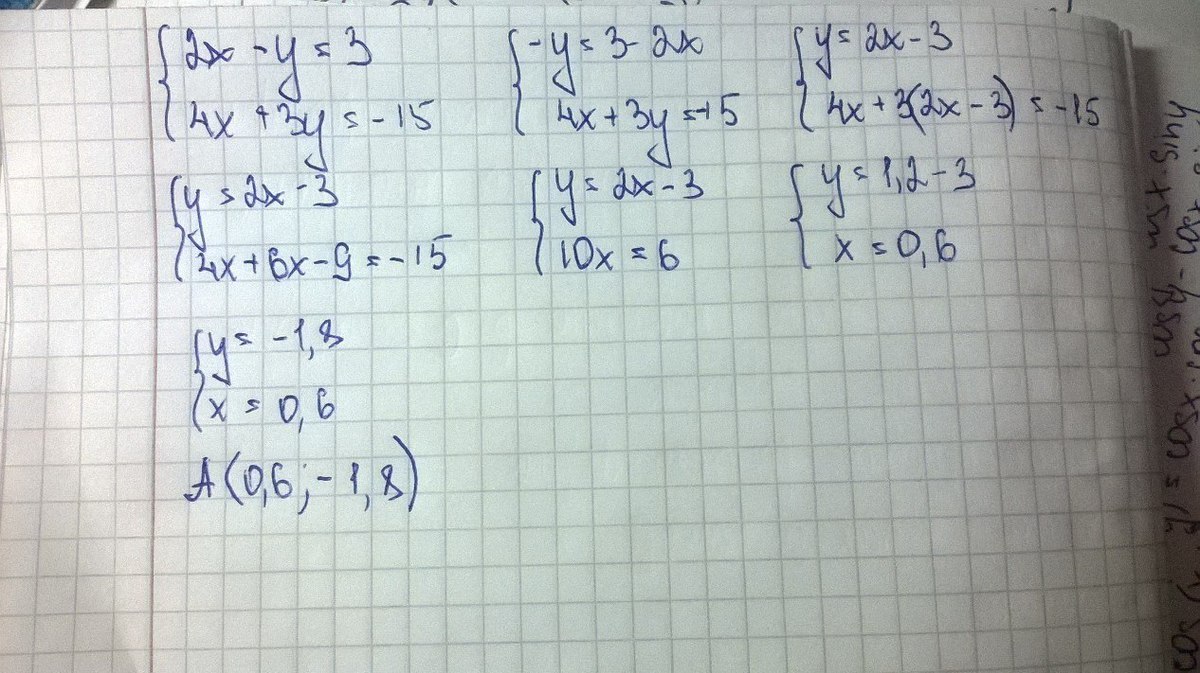 2x - y = 3
4x + 3y = -15
-y = 3 - 2x
4x + 3y = -15
y = 2x - 3
4x + 3(2x - 3) = -15
y = 2x - 3
4x + 6x - 9 = -15
y = 2x - 3
10x = 6
y = 1,2 - 3
x = 0,6
y = -1,8
x = 0,6
A(0,6; -1,8)